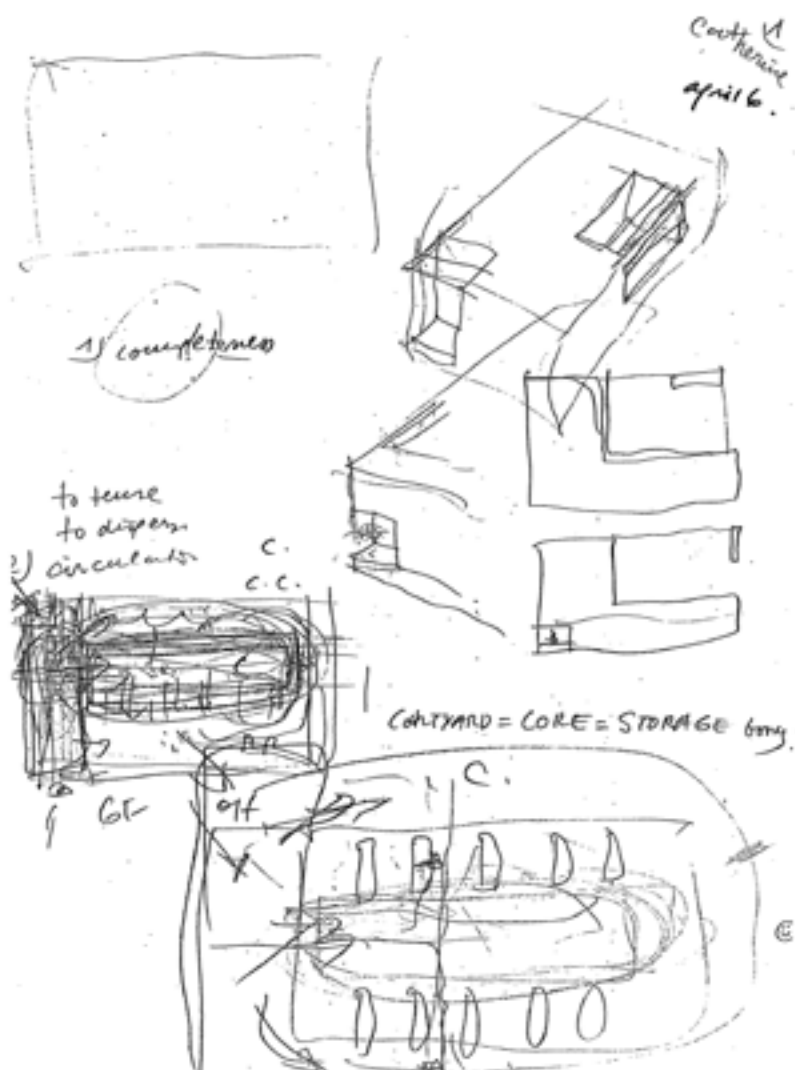 Catherine
april 6.
1) completeness
to tense
to dispers
2) circulation
C.
C.C.
COURTYARD = CORE = STORAGE
C.